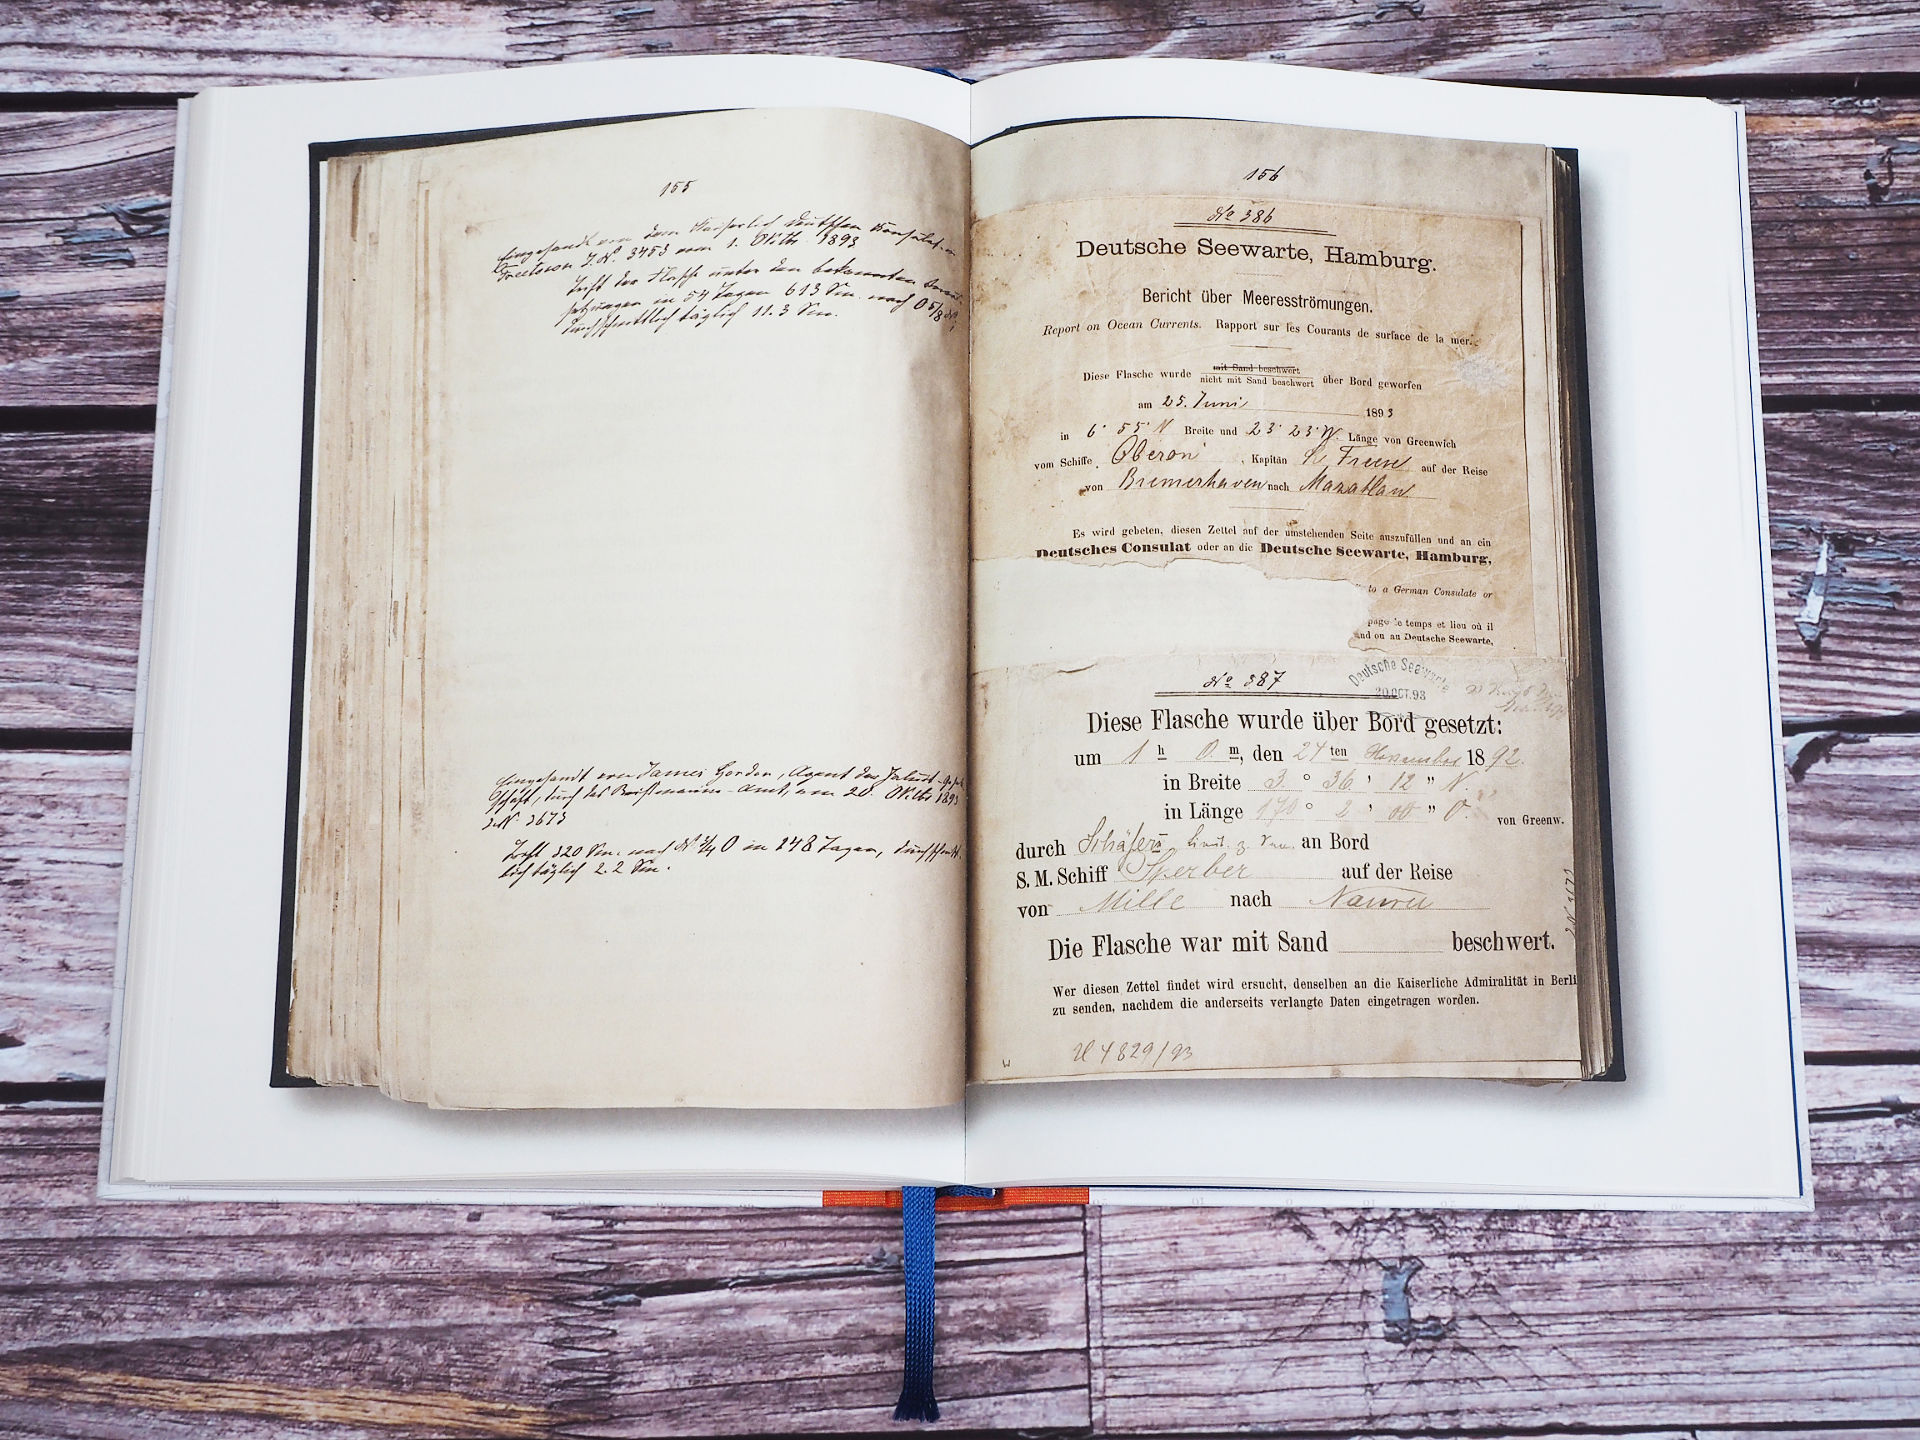 155
Eingesandt von dem Kaiserlich Deutschen Konsulat in
Freetown J. No. 3453 vom 1. Oktbr. 1893
Trift der Flasche unter den bekannten Voraus-
setzungen in 54 Tagen 613 Sm. nach O 5/8
durchschnittlich täglich 11.3 Sm.
Eingesandt von James Gordon, Agent der Jaluit-Gesell-
schaft, durch das Reichsmarine-Amt, vom 20. Oktbr 1893
J.N. 2673
Trift 520 Sm. nach N ¾ O in 248 Tagen, durchschnitt-
lich täglich 2.2 Sm.
156
No 386
Deutsche Seewarte, Hamburg.
Bericht über Meeresströmungen.
Report on Ocean Currents. Rapport sur les Courants de surface de la mer.
Diese Flasche wurde mit Sand beschwert
nicht mit Sand beschwert über Bord geworfen
am 25. Juni 1893
in 6° 55' N Breite und 23° 23' W. Länge von Greenwich
vom Schiffe Oberon, Kapitän auf der Reise
von Bremerhaven nach Mazatlan
Es wird gebeten, diesen Zettel auf der umstehenden Seite auszufüllen und an ein
Deutsches Consulat oder an die Deutsche Seewarte, Hamburg,
to a German Consulate or
page le temps et lieu où il
and ou an Deutsche Seewarte,
No 387
Deutsche Seewarte
20.OCT.93
Diese Flasche wurde über Bord gesetzt:
um 1 h 0 m, den 24 ten November 1892.
in Breite 3 ° 36 ' 12 " N.
in Länge 170 ° 2 ' 00 " O. von Greenw.
durch Schäfer an Bord
S. M. Schiff Sperber auf der Reise
von Mille nach Nauru
Die Flasche war mit Sand beschwert.
Wer diesen Zettel findet wird ersucht, denselben an die Kaiserliche Admiralität in Berli
zu senden, nachdem die anderseits verlangte Daten eingetragen worden.
4829/93
W